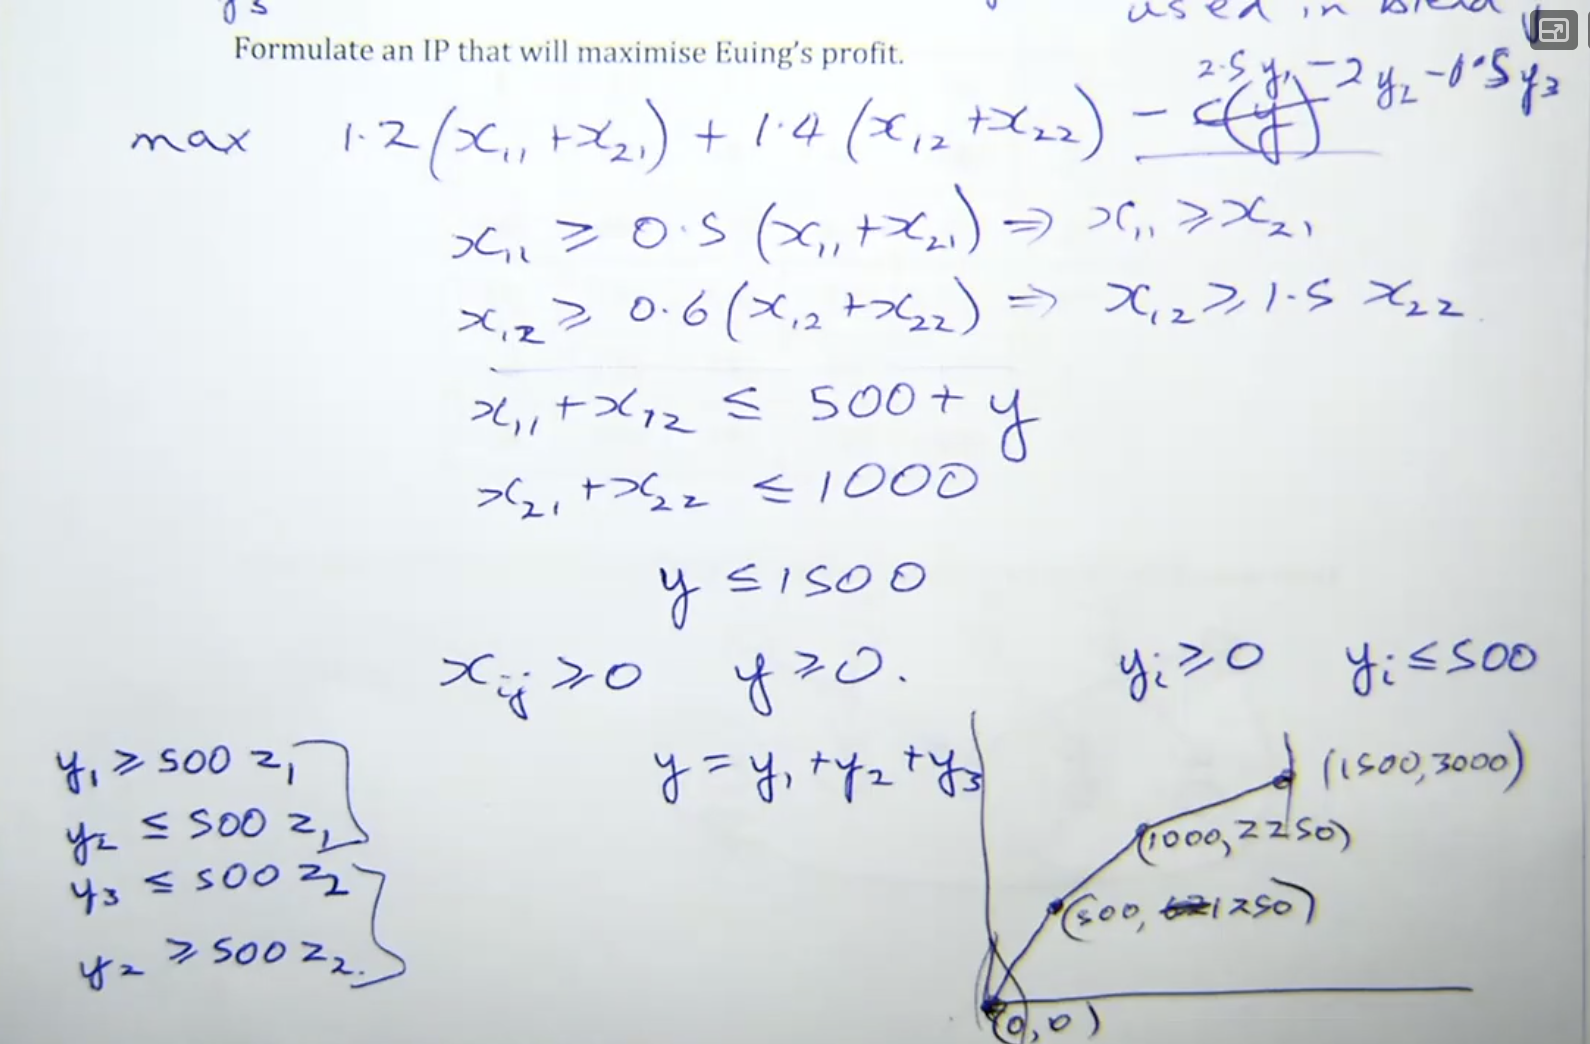 used in blend
Formulate an IP that will maximise Euing's profit.
max 1.2(x₁₁ + x₂₁) + 1.4(x₁₂ + x₂₂) - c(y) 2.5y₁ - 2y₂ - 1.5y₃
x₁₁ ≥ 0.5(x₁₁ + x₂₁) ⇒ x₁₁ ≥ x₂₁
x₁₂ ≥ 0.6(x₁₂ + x₂₂) ⇒ x₁₂ ≥ 1.5 x₂₂
x₁₁ + x₁₂ ≤ 500 + y
x₂₁ + x₂₂ ≤ 1000
y ≤ 1500
xᵢⱼ ≥ 0 y ≥ 0. yᵢ ≥ 0 yᵢ ≤ 500
y = y₁ + y₂ + y₃
y₁ ≥ 500 z₁
y₂ ≤ 500 z₁
y₃ ≤ 500 z₂
y₂ ≥ 500 z₂.
(1500, 3000)
(1000, 2250)
(500, 1250)
(0, 0)